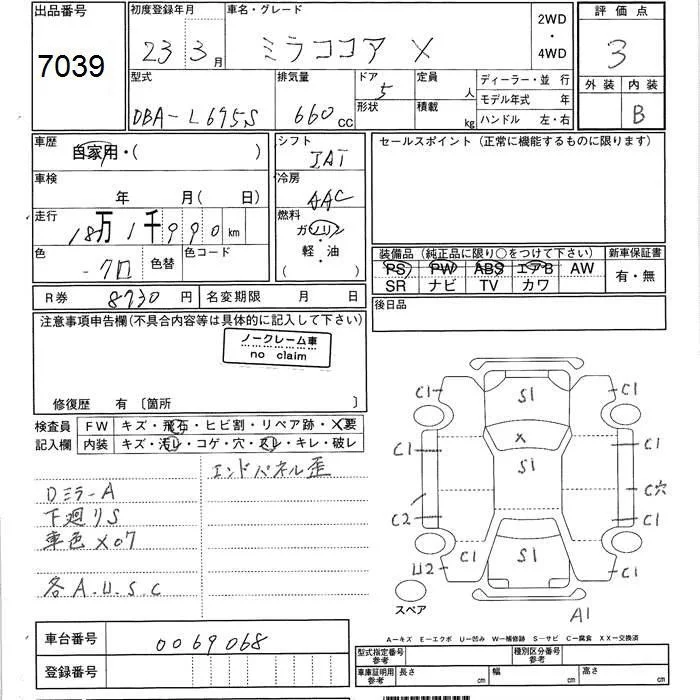 出品番号 初度登録年月 車名・グレード 2WD ・ 4WD 評価点
7039 23 3月 ミラココア X 3
型式 排気量 ドア 定員 人 ディーラー・並行 外装 内装
DBA-L675S 660cc 5 形状 積載 kg モデル年式 年 B
ハンドル 左・右
車歴 自家用・( ) シフト IAT セールスポイント(正常に機能するものに限ります)
車検 年 月(日) 冷房 AAC
走行 18万1千990km 燃料 ガソリン
色 -クロ 色替 色コード 軽・油 ( )
装備品(純正品に限り○をつけて下さい) 新車保証書
PS PW ABS エアB AW 有・無
SR ナビ TV カワ
R券 8730円 名変期限 月 日 後日品
注意事項申告欄(不具合内容等は具体的に記入して下さい)
ノークレーム車
no claim
修復歴 有 〔箇所 〕
検査員 FW キズ・飛石・ヒビ割・リペア跡・X要
記入欄 内装 キズ・汚レ・コゲ・穴・スレ・キレ・破レ
エンドパネル歪
DミラーA
下廻りS
車色X07
各A.U.S.C
C1 S1 C1
X
C1 S1 C1
C穴
C2 C1
U2 C1 S1 C1
スペア A1
A-キズ E-エクボ U-凹み W-補修跡 S-サビ C-腐食 XX-交換済
車台番号 0069068
登録番号
型式指定番号 参考 種別区分番号 参考
車庫証明用 参考 長さ cm 幅 cm 高さ cm